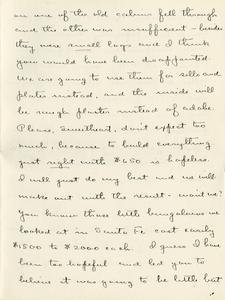 on one of the old cabins fell through
and the other was insufficient - besides
they were small logs and I think
you would have been disappointed.
We are going to use them for sills and
plates instead, and the inside will
be rough plaster instead of adobe.
Please, Sweetheart, don't expect too
much, because to build everything
just right with $650 is hopeless.
I will just do my best and we will
make out with the result - won't we?
You know those little bungalows we
looked at in Santa Fe cost easily
$1500 to $2000 each. I guess I have
been too hopeful and led you to
believe it was going to be little but